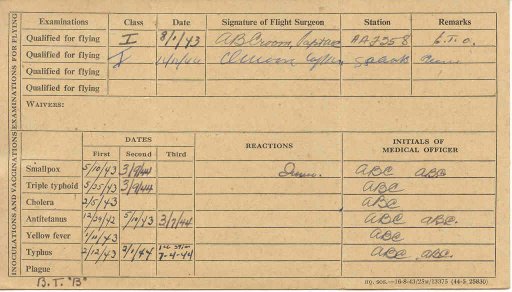 Examinations Class Date Signature of Flight Surgeon Station Remarks
Qualified for flying I 8/1/43 ABCroom, Captain AAF258 E.T.O.
Qualified for flying I
Qualified for flying
Qualified for flying
WAIVERS:
DATES REACTIONS INITIALS OF
First Second Third MEDICAL OFFICER
Smallpox 5/10/43 3/9/44 Imm. ABC ABC
Triple typhoid 5/25/43 3/9/44 ABC
Cholera 2/5/43 ABC
Antitetanus 12/29/42 5/10/43 3/7/44 ABC ABC.
Yellow fever 1/10/43 ABC
Typhus 2/12/43 2/1/44 7-4-44 ABC ABC.
Plague
B.T. "B" HQ. SOS.—16-8-43/25M/13375 (44-5, 25830)
INOCULATIONS AND VACCINATIONS EXAMINATIONS FOR FLYING